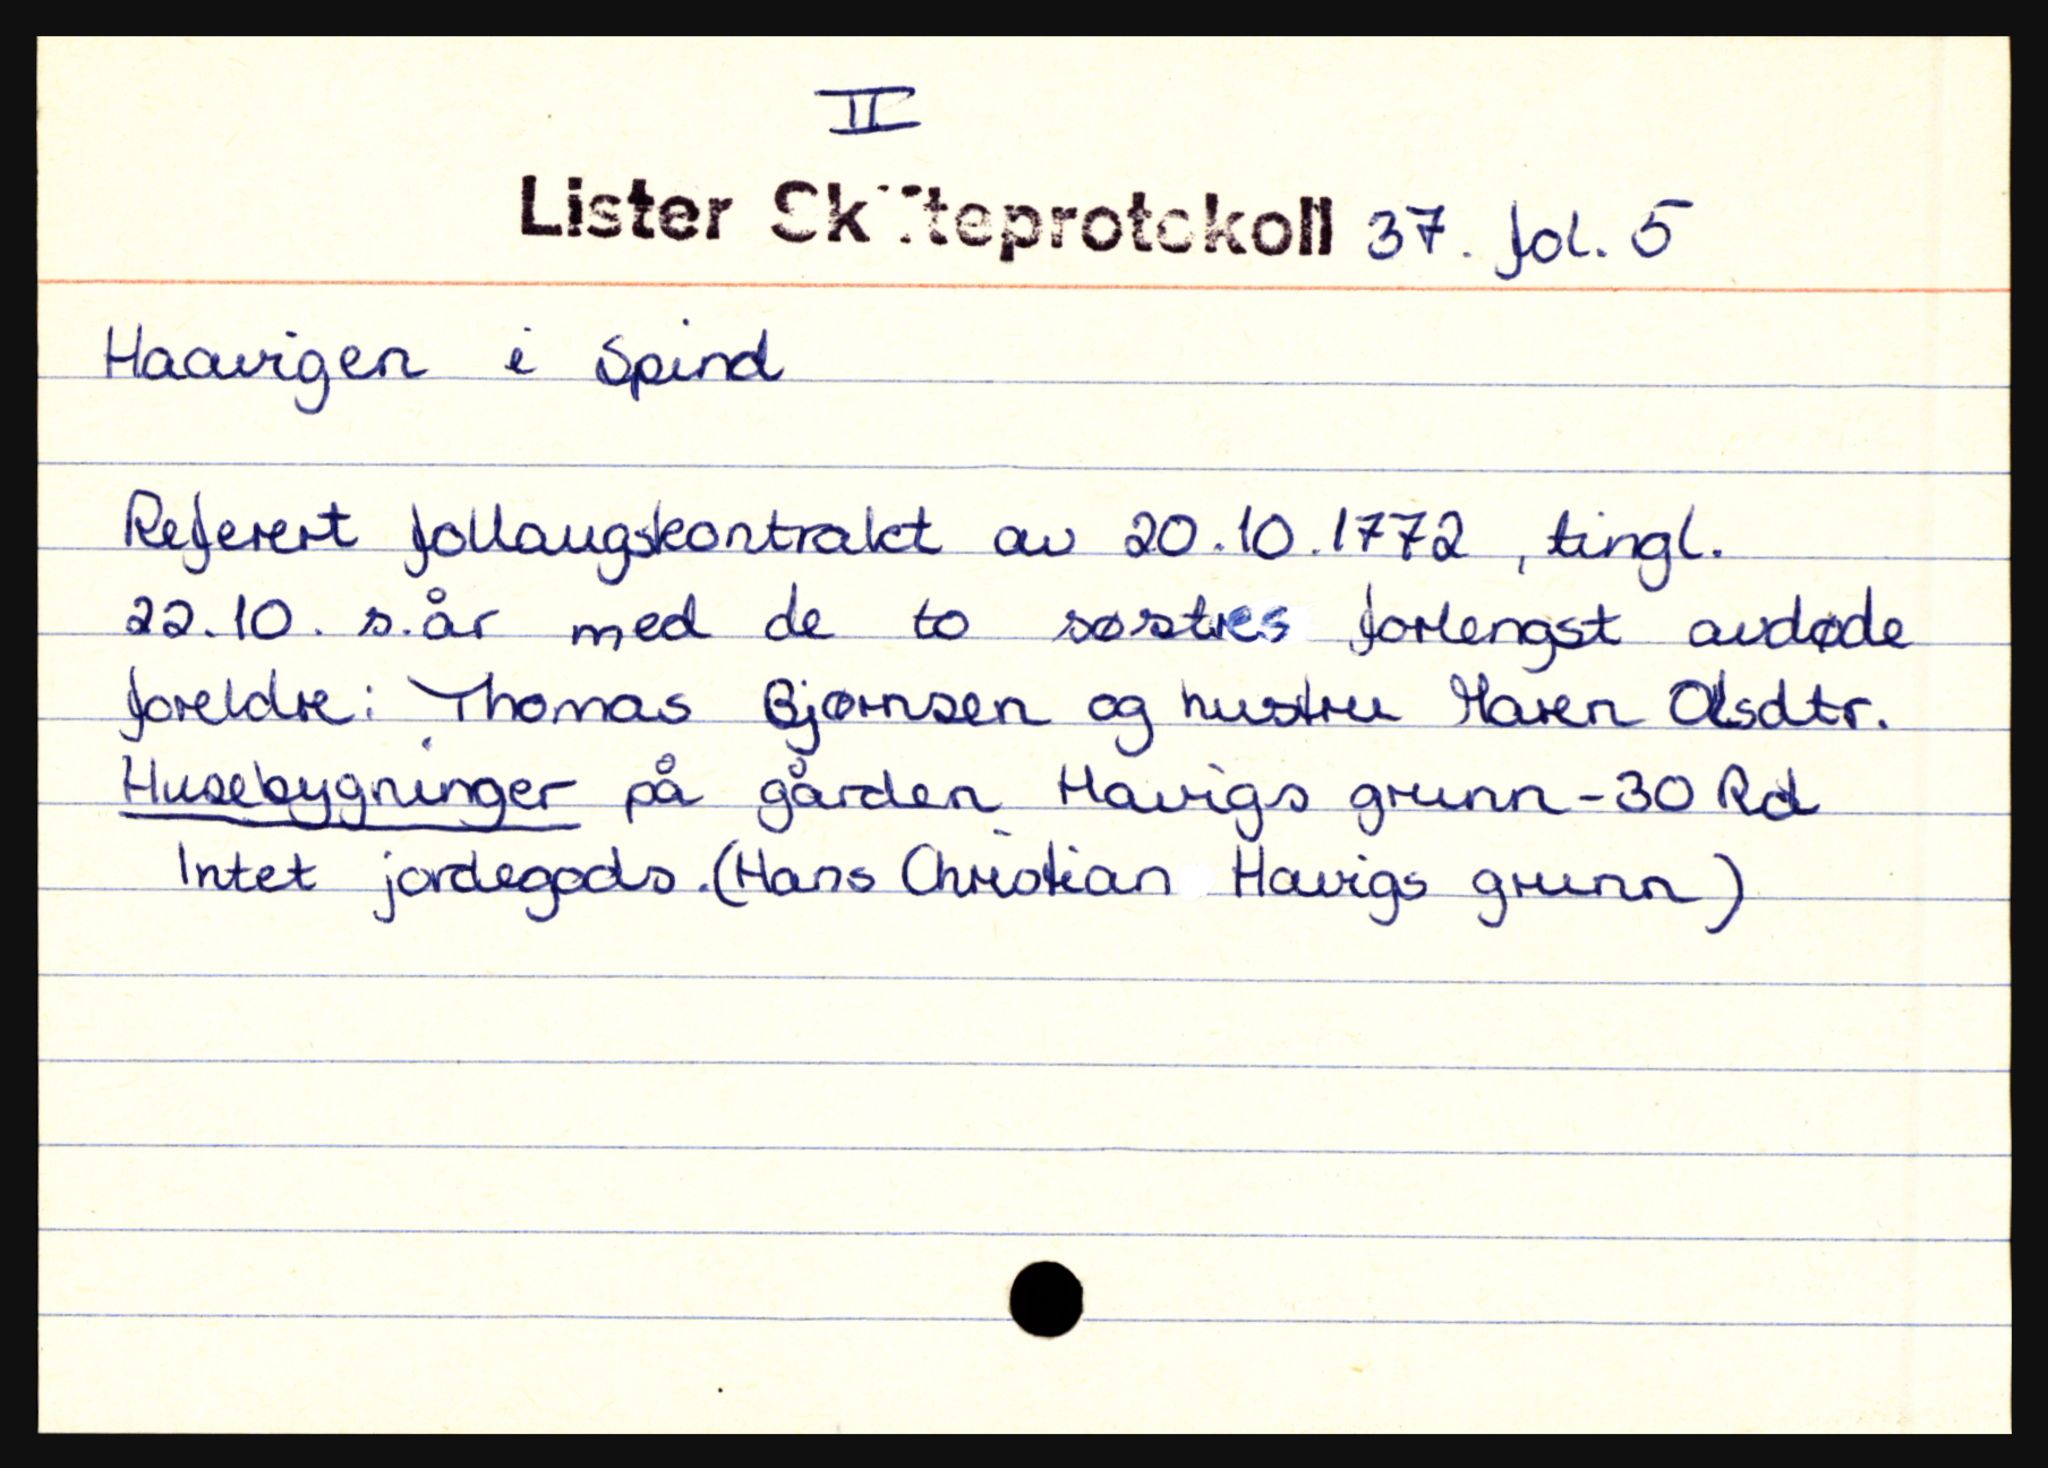 II
Lister Skifteprotokoll 37. fol. 5
Haavigen i Spind
Referert follaugskontrakt av 20.10.1772, tingl.
22.10. s.år med de to søstres forlengst avdøde
foreldre: Thomas Bjørnsen og hustru Maren Olsdtr.
Husebygninger på gården Havigs grunn - 30 Rd
Intet jordegods. (Hans Christian Havigs grunn)